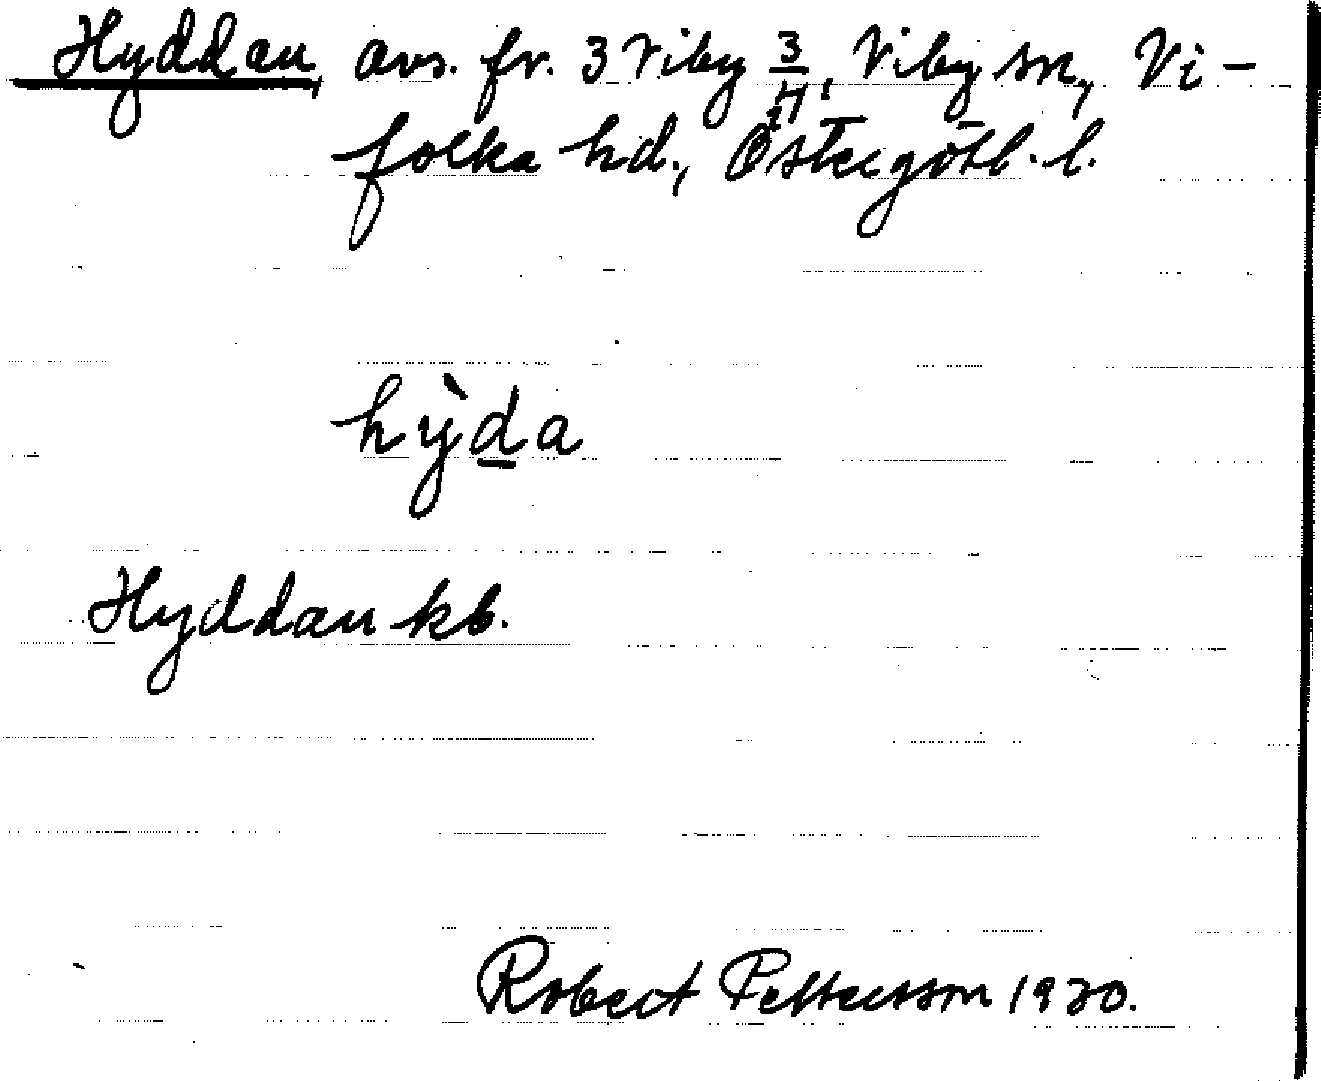 Hyddan, avs. fr. 3 Viby 3/4, Viby sn, Vi-
folka hd., Östergötl. l.
hỳda
Hyddan kb.
Robert Pettersson 1920.